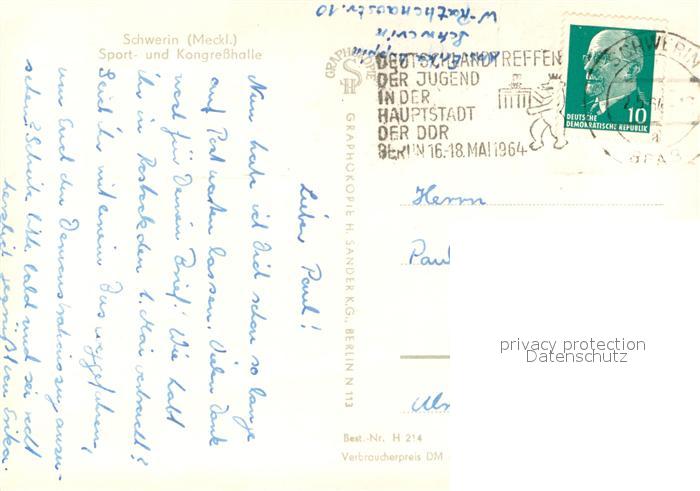 Schwerin (Meckl.)
Sport- und Kongreßhalle
Schwerin
W-Rathenaustr. 10
GRAPHOKOPIE
SH
DEUTSCHLANDTREFFEN
DER JUGEND
IN DER
HAUPTSTADT
DER DDR
BERLIN 16.-18. MAI 1964
SCHWERIN
10
DEUTSCHE
DEMOKRATISCHE REPUBLIK
GRAPHOKOPIE H. SANDER K.G., BERLIN N 113
Lieber Paul!
Nun habe ich Dich schon so lange
auf Post warten lassen. Vielen Dank
noch für Deinen Brief! Wie habt
ihr in Rostock den 1. Mai verbracht?
Seid ihr mit einem Bus weggefahren,
um Euch den Demonstrationszug anzu-
sehen? Schreib bitte bald und sei recht
herzlich gegrüßt von Erika.
Herrn
Paul
privacy protection
Datenschutz
Best.-Nr. H 214
Verbraucherpreis DM